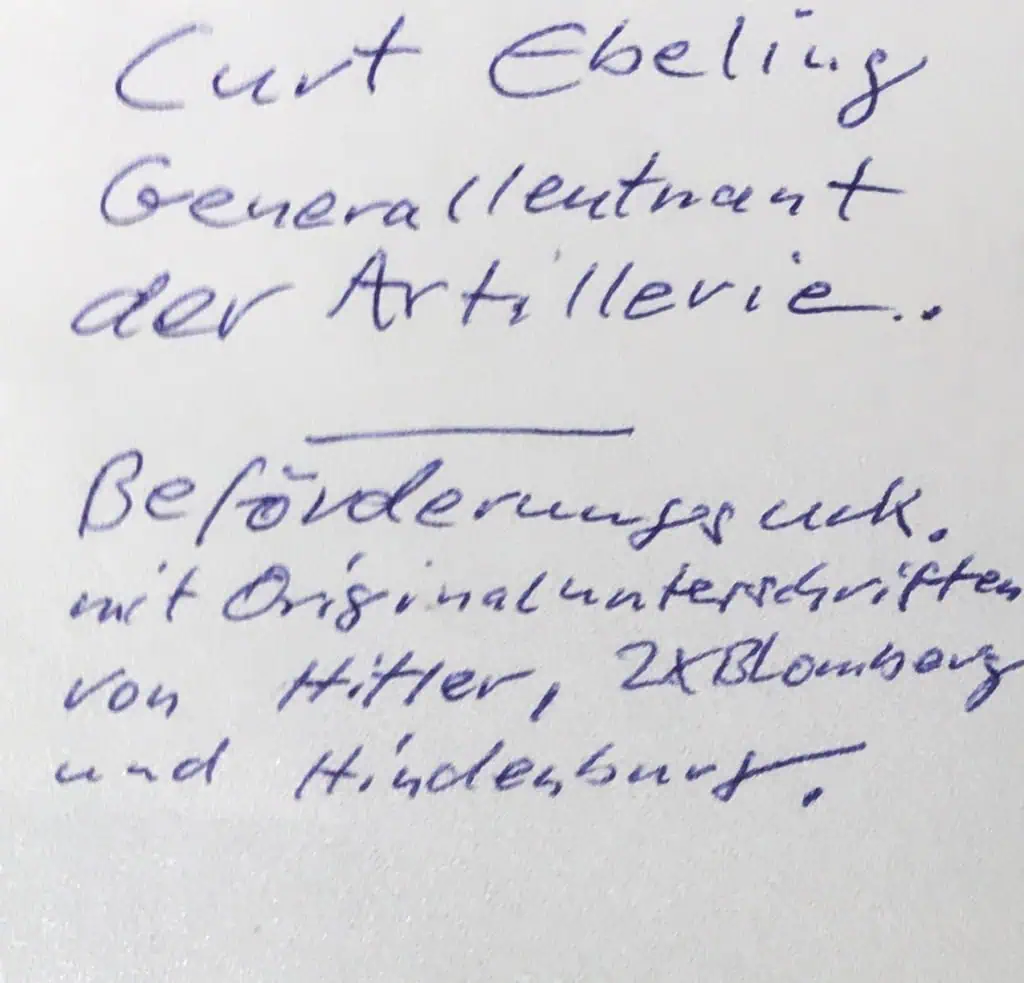 Curt Ebeling
Generalleutnant
der Artillerie..
Beförderungsurk.
mit Originalunterschriften
von Hitler, 2x Blomberg
und Hindenburg.